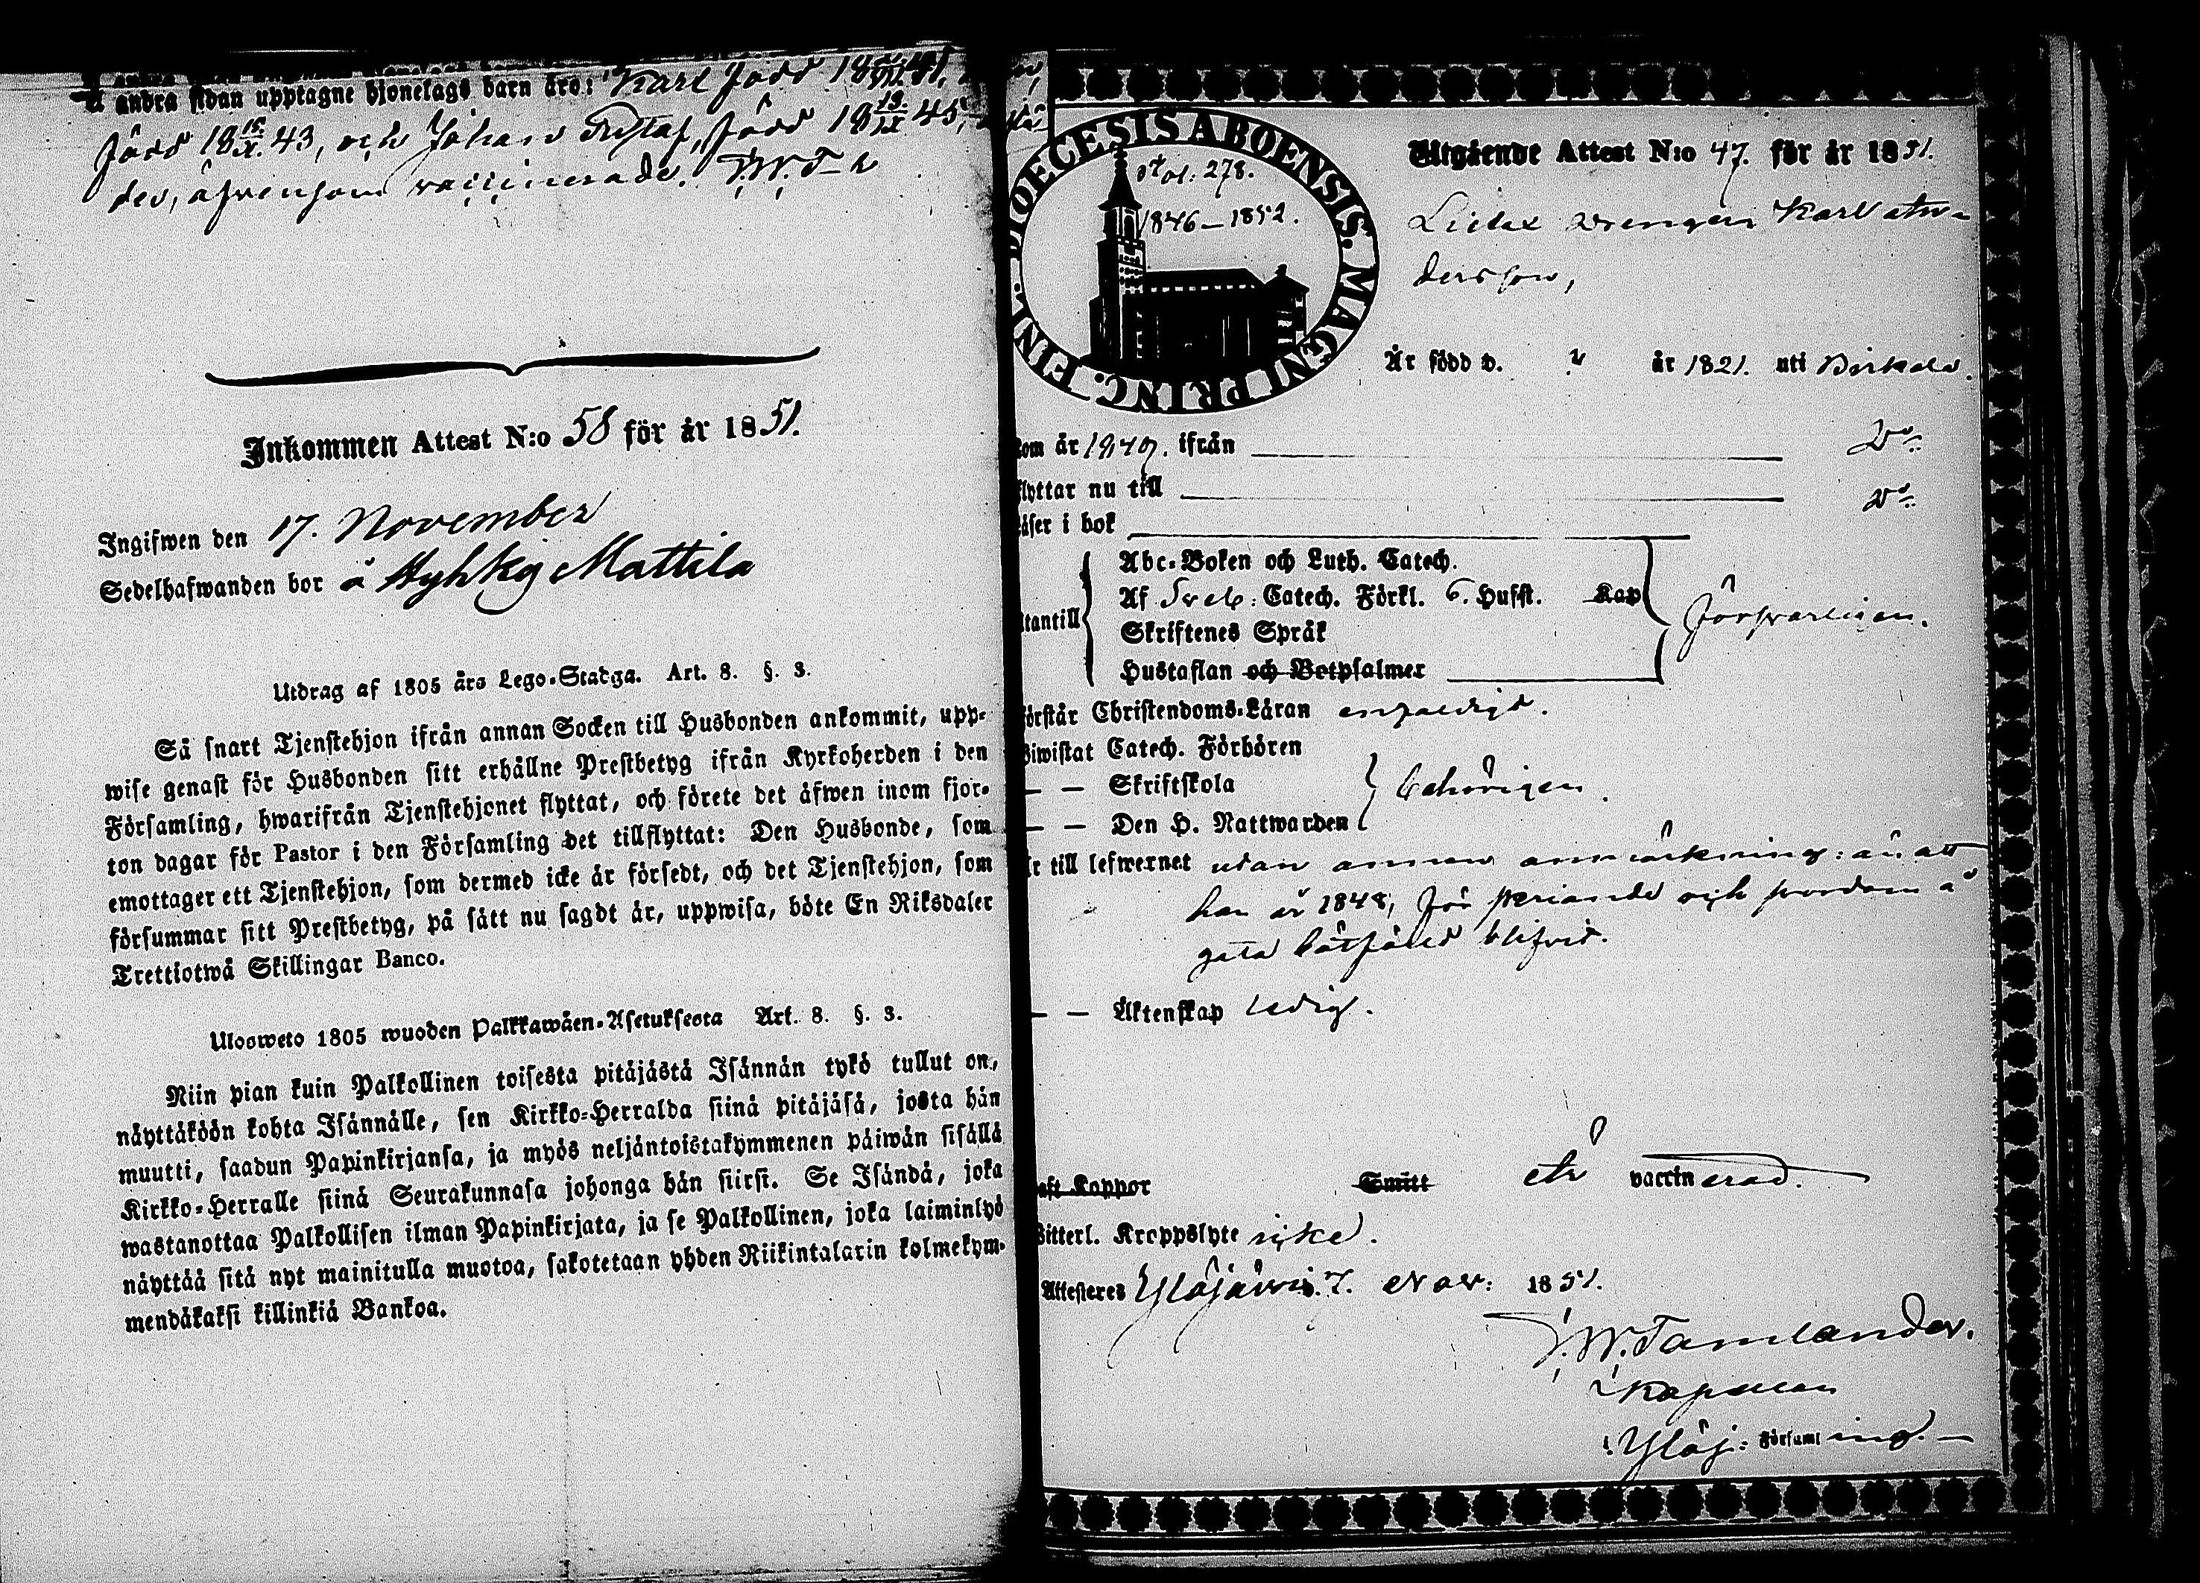 å andra sidan upptagne hjonelags barn äro: Karl född 18
född 18 16/X. 43, och Johan Gustaf, född 18 19/IX 45,
der, äfvensom vaccinerade. W. T-r
Inkommen Attest N:o 58 för år 1851.
Ingifwen den 17. November
Sedelhafwanden bor å Hyhky Mattila
Utdrag af 1805 års Lego-Stadga. Art. 8. §. 3.
Så snart Tjenstehjon ifrån annan Socken till Husbonden ankommit, upp-
wise genast för Husbonden sitt erhållne Prestbetyg ifrån Kyrkoherden i den
Församling, hwarifrån Tjenstehjonet flyttat, och förete det äfwen inom fjor-
ton dagar för Pastor i den Församling det tillflyttat: Den Husbonde, som
emottager ett Tjenstehjon, som dermed icke är försedt, och det Tjenstehjon, som
försummar sitt Prestbetyg, på sätt nu sagdt är, uppwisa, böte En Riksdaler
Trettiotwå Skillingar Banco.
Ulosweto 1805 wuoden Palkkawäen-Asetuksesta Art. 8. §. 3.
Niin pian kuin Palkollinen toisesta pitäjästä Isännän tykö tullut on,
näyttäköön kohta Isännälle, sen Kirkko-Herralda siinä pitäjäsä, josta hän
muutti, saadun Papinkirjansa, ja myös neljäntoistakymmenen päiwän sisällä
Kirkko-Herralle siinä Seurakunnasa johonga hän siirsi. Se Isändä, joka
wastanottaa Palkollisen ilman Papinkirjata, ja se Palkollinen, joka laiminlyö
näyttää sitä nyt mainitulla muotoa, sakotetaan yhden Riikintalarin kolmekym-
mendäkaksi killinkiä Bankoa.
DIOECESIS ABOENSIS. MAGNI PRINC. FINL.
Fol: 278.
1846–1852.
Utgående Attest N:o 47. för år 1851.
drengen Karl An-
dersson,
Är född d. ? år 1821. uti Birkala.
kom år 1849. ifrån D:o
flyttar nu till D:o
läser i bok
Utantill
Abc-Boken och Luth. Catech.
Af Sveb: Catech. Förkl. 6. Hufst. Kap
Skriftenes Språk
Hustaflan och Botpsalmer
försvarligen.
förstår Christendoms-Läran enfaldigt.
Biwistat Catech. Förhören
— — Skriftskola
— — Den H. Nattwarden
behörigen.
Är till lefwernet utan annan anmärkning: än att
han år 1848, för svärjande och svordom å
gata bötfäld blifvit.
— — Äktenskap ledig.
haft Koppor Smitt Är vaccinerad.
Witterl. Kroppslyte icke.
Attesteres Ylöjärvi. 7. Nov: 1851.
W. Tamlander.
Kapellan
i Ylöj: Församling.